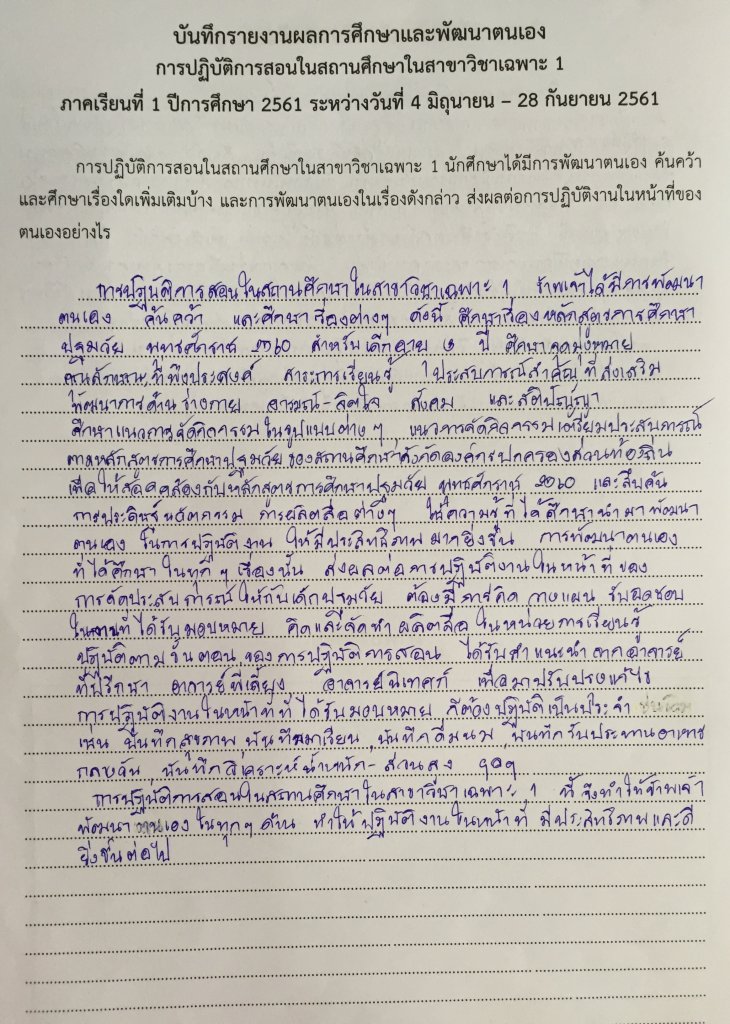 บันทึกรายงานผลการศึกษาและพัฒนาตนเอง
การปฏิบัติการสอนในสถานศึกษาในสาขาวิชาเฉพาะ 1
ภาคเรียนที่ 1 ปีการศึกษา 2561 ระหว่างวันที่ 4 มิถุนายน – 28 กันยายน 2561
การปฏิบัติการสอนในสถานศึกษาในสาขาวิชาเฉพาะ 1 นักศึกษาได้มีการพัฒนาตนเอง ค้นคว้า
และศึกษาเรื่องใดเพิ่มเติมบ้าง และการพัฒนาตนเองในเรื่องดังกล่าว ส่งผลต่อการปฏิบัติงานในหน้าที่ของ
ตนเองอย่างไร
การปฏิบัติการสอนในสถานศึกษาในสาขาวิชาเฉพาะ ๑ ข้าพเจ้าได้มีการพัฒนา
ตนเอง ค้นคว้า และศึกษาเรื่องต่างๆ ดังนี้ ศึกษาเรื่องหลักสูตรการศึกษา
ปฐมวัย พุทธศักราช ๒๕๖๐ สำหรับเด็กอายุ ๓ ปี ศึกษาจุดมุ่งหมาย
คุณลักษณะที่พึงประสงค์ สาระการเรียนรู้ ประสบการณ์สำคัญที่ส่งเสริม
พัฒนาการด้านร่างกาย อารมณ์-จิตใจ สังคม และสติปัญญา
ศึกษาแนวการจัดกิจกรรมในรูปแบบต่างๆ , แนวการจัดกิจกรรมเตรียมประสบการณ์
ตามหลักสูตรการศึกษาปฐมวัยของสถานศึกษาสังกัดองค์กรปกครองส่วนท้องถิ่น
เพื่อให้สอดคล้องกับหลักสูตรการศึกษาปฐมวัย พุทธศักราช ๒๕๖๐ และสืบค้น
การประดิษฐ์นวัตกรรม การผลิตสื่อต่างๆ ใช้ความรู้ที่ได้ศึกษานำมาพัฒนา
ตนเอง ในการปฏิบัติงาน ให้มีประสิทธิภาพมากยิ่งขึ้น การพัฒนาตนเอง
ที่ได้ศึกษาในทุกๆเรื่องนั้น ส่งผลต่อการปฏิบัติงานในหน้าที่ของ
การจัดประสบการณ์ให้กับเด็กปฐมวัย ต้องมีการคิด วางแผน รับผิดชอบ
ในงานที่ได้รับมอบหมาย คิดและจัดทำ ผลิตสื่อในหน่วยการเรียนรู้
ปฏิบัติตามขั้นตอนของการปฏิบัติการสอน ได้รับคำแนะนำจากอาจารย์
ที่ปรึกษา อาจารย์พี่เลี้ยง อาจารย์นิเทศก์ เพื่อมาปรับปรุงแก้ไข
การปฏิบัติงานในหน้าที่ที่ได้รับมอบหมาย ที่ต้องปฏิบัติเป็นประจำ
เช่น บันทึกสุขภาพ, บันทึกมาเรียน, บันทึกดื่มนม, บันทึกรับประทานอาหาร
กลางวัน, บันทึกวิเคราะห์น้ำหนัก-ส่วนสูง ฯลฯ
การปฏิบัติการสอนในสถานศึกษาในสาขาวิชาเฉพาะ ๑ นี้ จึงทำให้ข้าพเจ้า
พัฒนาตนเองในทุกๆด้าน ทำให้ปฏิบัติงานในหน้าที่ มีประสิทธิภาพและดี
ยิ่งขึ้นต่อไป